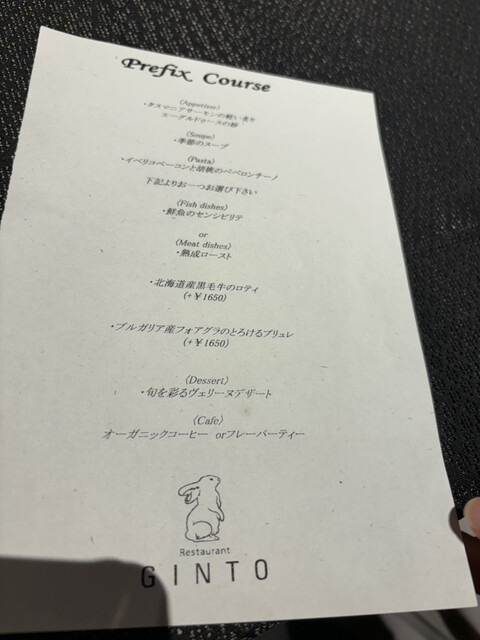 Prefix Course
(Appetizer)
・タスマニアサーモンの軽い炙り
エーグルドゥースの粉
(Soupe)
・季節のスープ
(Pasta)
・イベリコベーコンと胡桃のペペロンチーノ
下記よりお一つお選び下さい
(Fish dishes)
・鮮魚のセンシビリテ
or
(Meat dishes)
・熟成ロースト
・北海道産黒毛牛のロティ
(+¥1650)
・ブルガリア産フォアグラのとろけるブリュレ
(+¥1650)
(Dessert)
・旬を彩るヴェリーヌデザート
(Cafe)
オーガニックコーヒー orフレーバーティー
Restaurant
GINTO